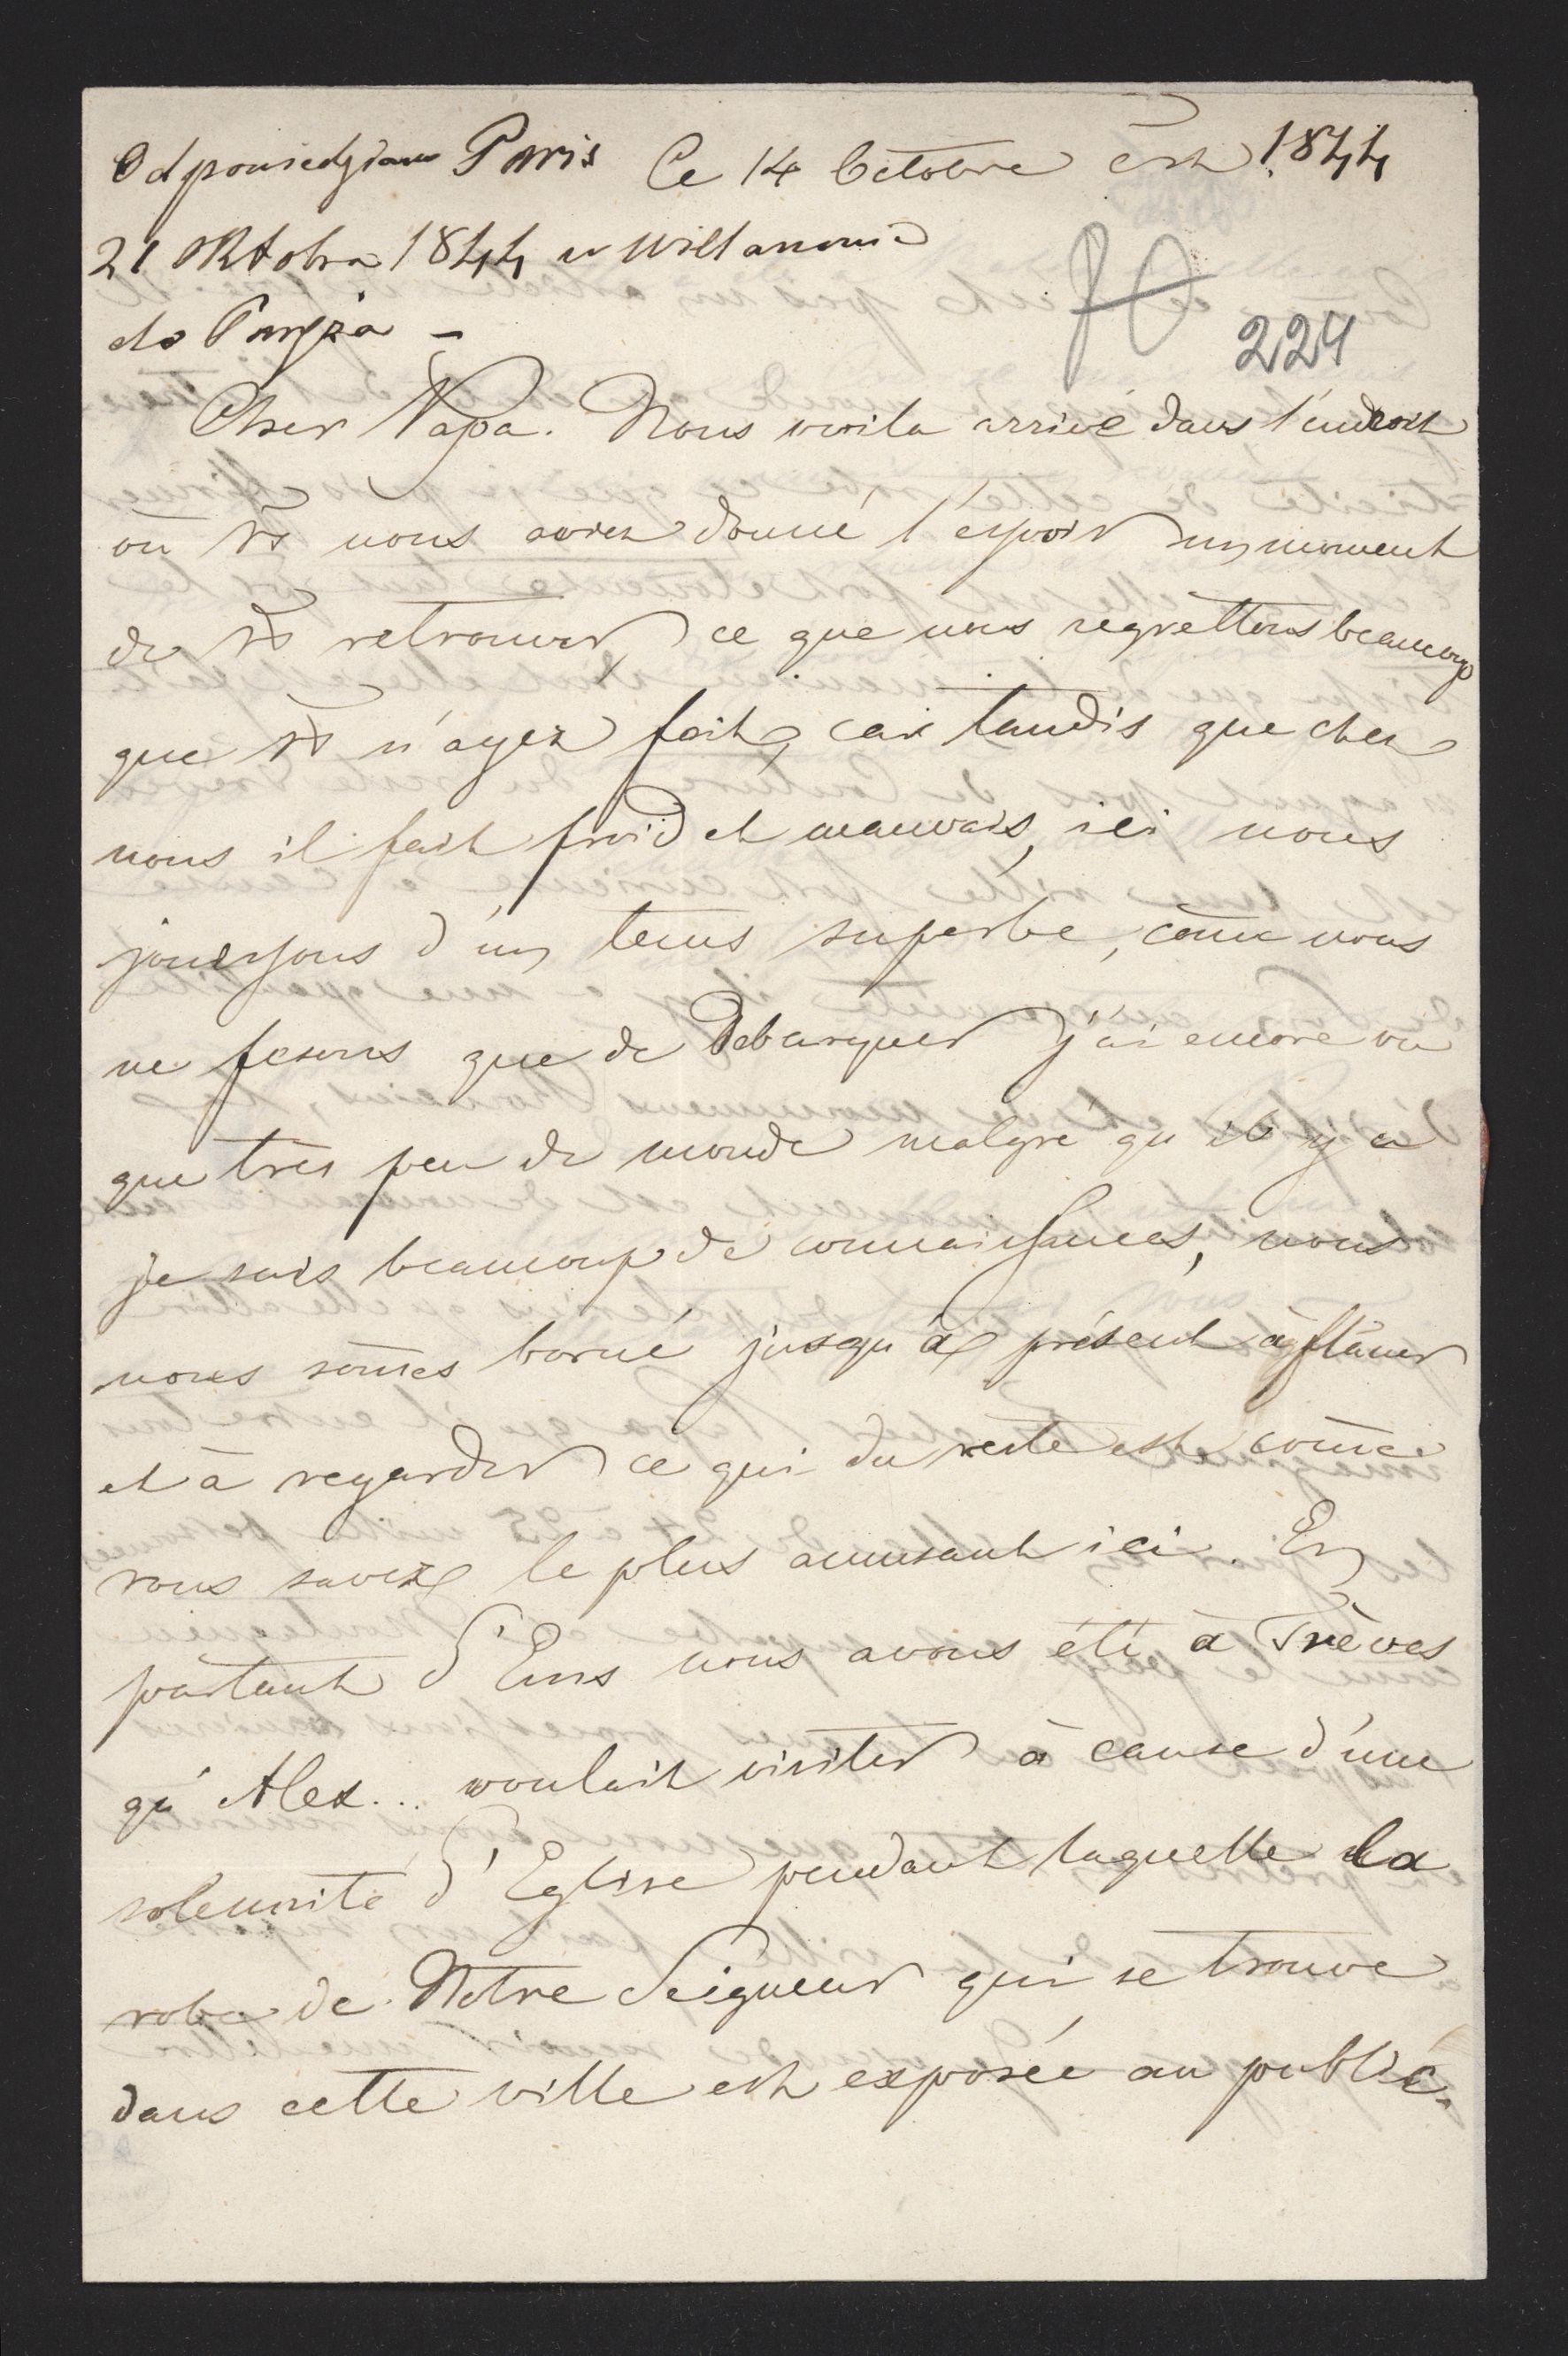 Odpowiedziano Paris Ce 14 Octobre 1844
21 Oktobra 1844 w Willanowie
do Paryża –
224
Cher Papa. Nous voila arrivé dans l'endroit
où vs nous aviez donné l'espoir un moment
de vs retrouver, ce que nous regrettons beaucoup
que vs n'ayez fait, car tandis que chez
nous il fait froid et mauvais, ici nous
jouissons d'un tems superbe, come nous
ne fesons que de débarquer j'ai encore vu
que très peu de monde malgré qu'il y a
je sais beaucoup de connaissances, nous
nous somes borné jusqu'à présent à flâner
et à regarder ce qui du reste est come
vous savez le plus amusant ici. En
partant d'Ems nous avons été à Trèves
qu'Alex... voulait visiter à cause d'une
solennité d'Eglise pendant laquelle la
robe de Notre Seigneur qui se trouve
dans cette ville est exposée au public.